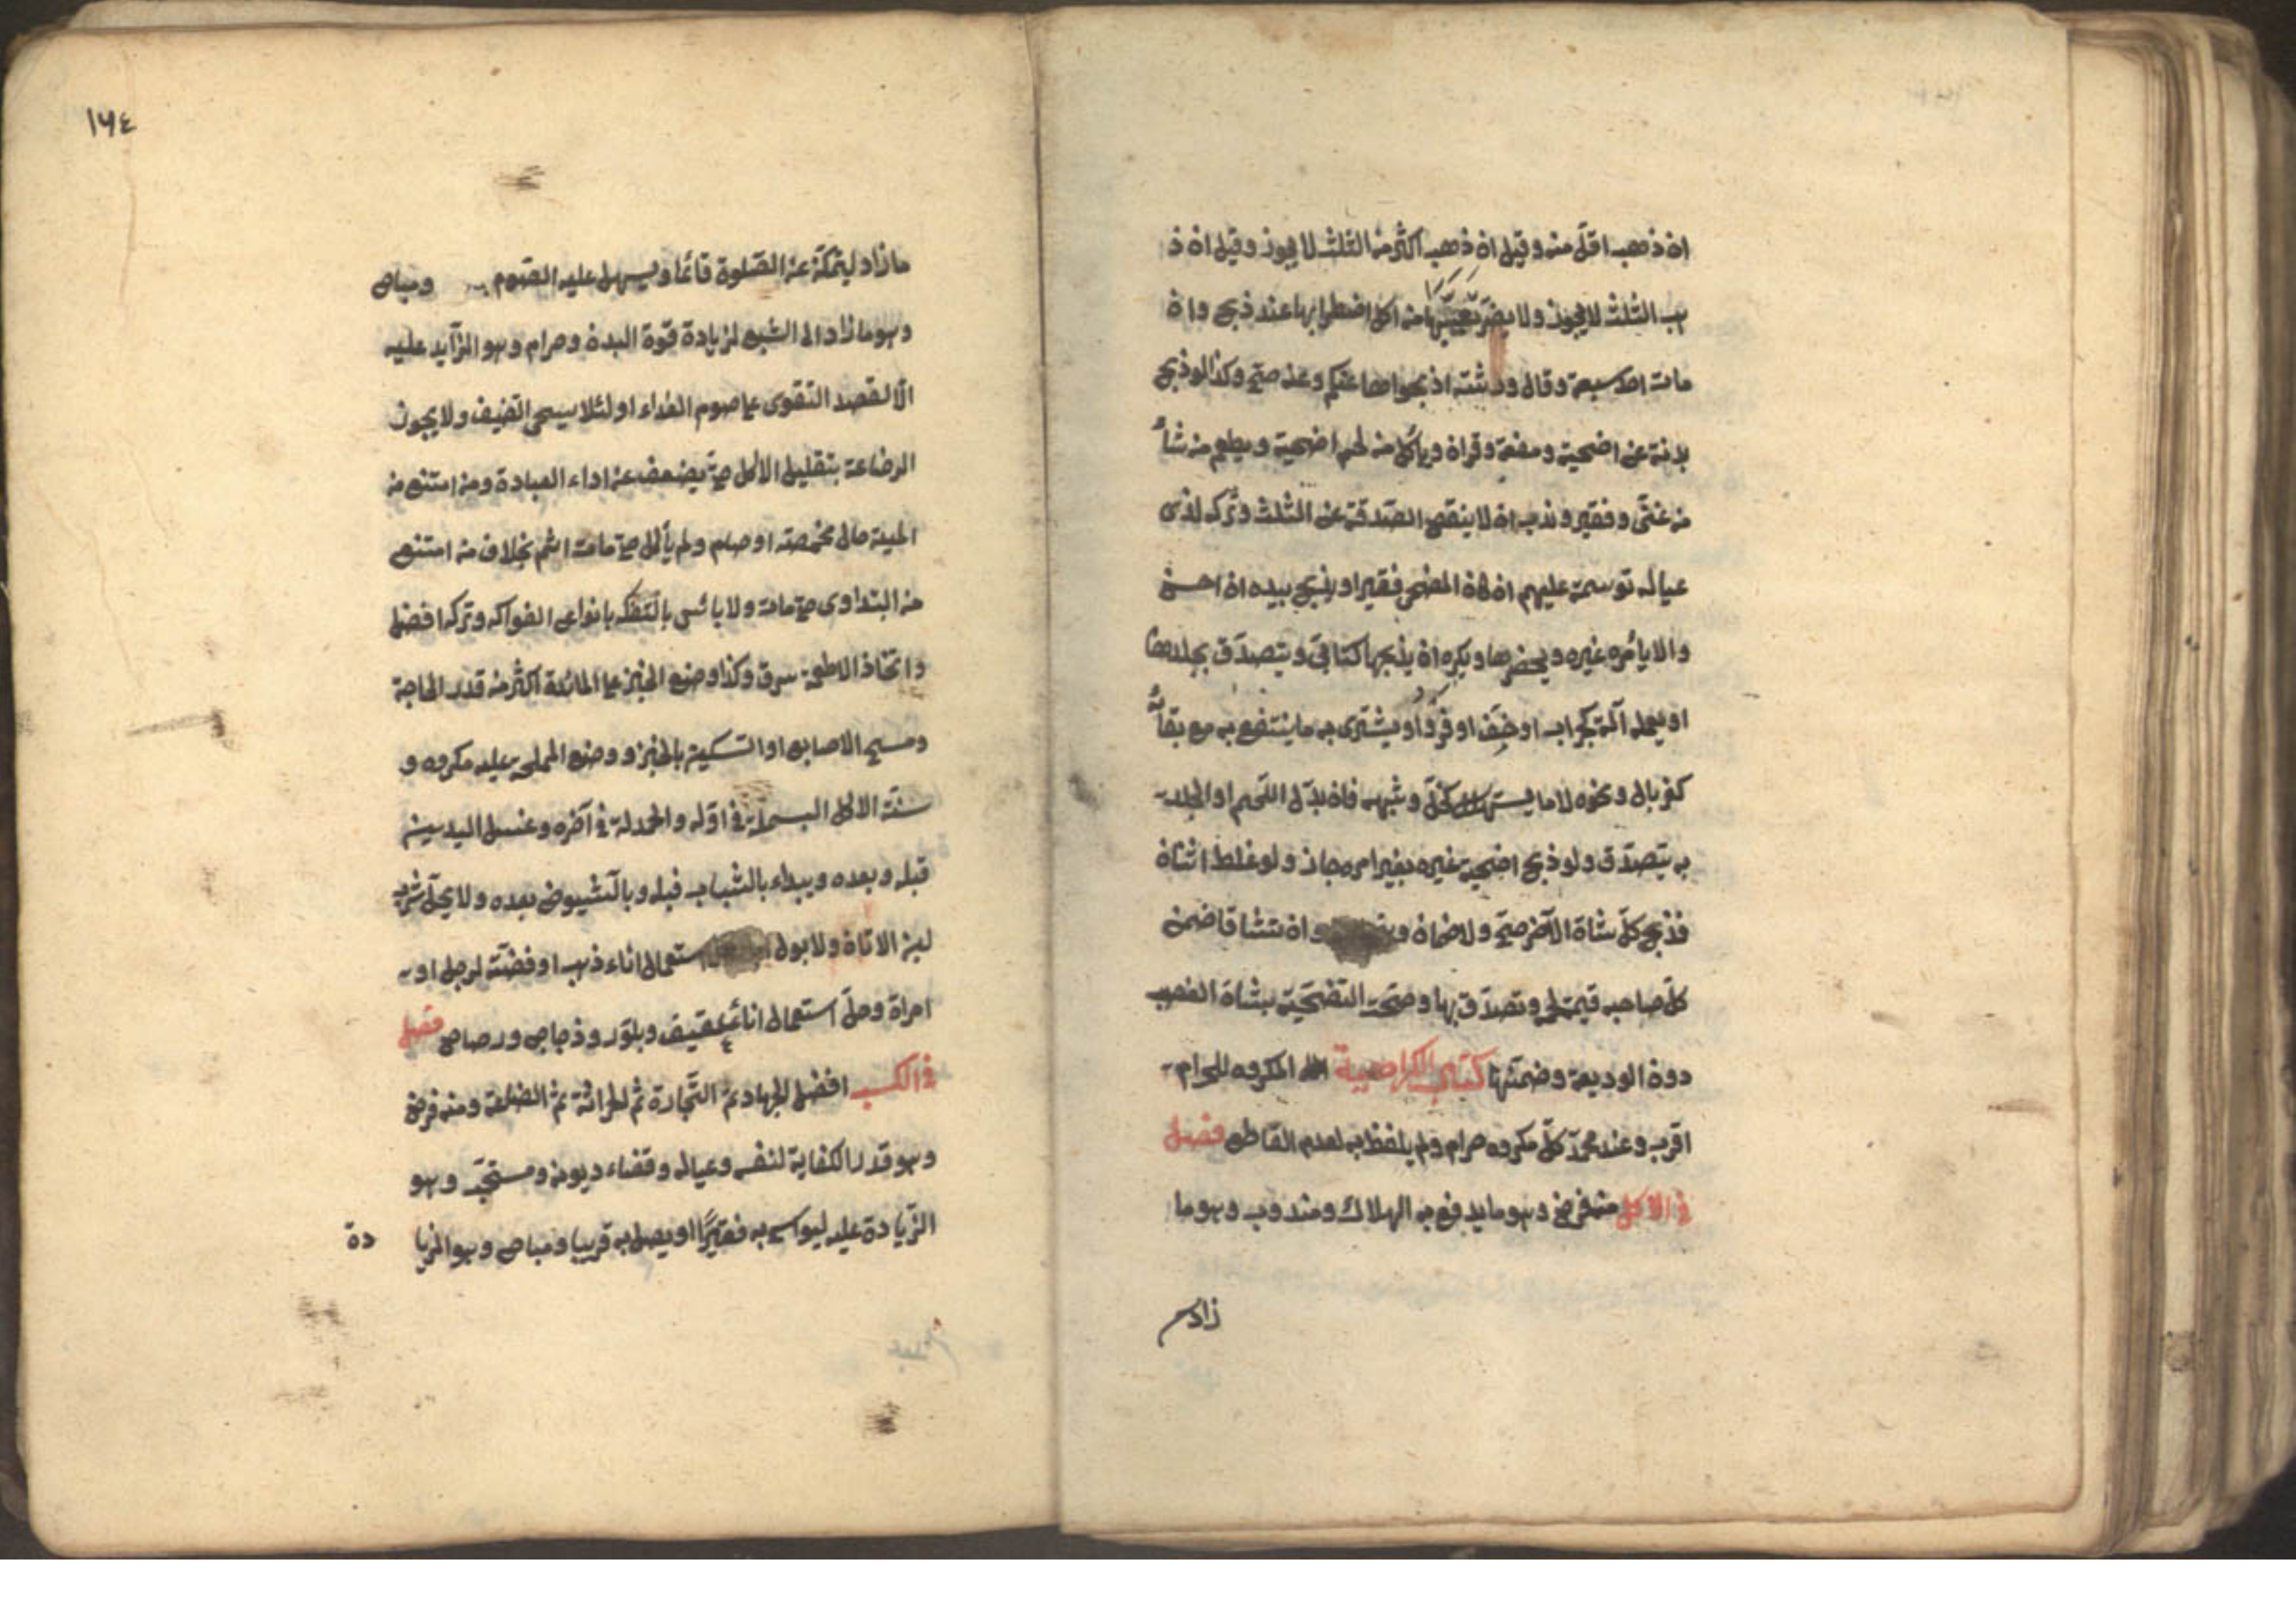 ان ذهب اقلّ منه وقيل ان ذهب اكثر من الثلث لا يجوز وقيل ان ذ
هب الثلث لا يجوز ولا يضرّ تعيّبها من اضطرابها عند ذبح وان
مات احد سبعة وقال ورثته اذبحوها عنكم وعنه صحّ وكذا لو ذبح
بدنة عن اضحية ومتعة وقران ويأكل من لحم اضحية ويطعم من شأ
من غنّى وفقير وندب ان لا ينقص الصّدقة عن الثلث وتركه لذى
عياله توسعة عليهم ان كان المضحى فقيرا ويذبح بيده ان احسن
والا يأمره غيره ويحضرها ويكره ان يذبحها كتابىّ ويتصدّق بجلدها
او يعمله آلة كجراب او خفّ او فرو او يشترى به ما ينتفع به مع بقائه
كغربال ونحوه لا ما يستهلك كخلّ وشبهه فان بدّل اللّحم او الجلد
به يتصدّق ولو ذبح اضحية غيره بغير امره جاز ولو غلط اثنان
فذبح كلّ شاة الآخر صحّ ولا ضمان وان تشاقا ضمن
كلّ صاحبه قيمة لحمه وتصدّق بها وصحّت التضحيّة بشاة الغصب
دون الوديعة وضمنها كتاب الكراهية المكروه للحرام
اقرب وعند محمّد كلّ مكروه حرام ولم يلفظ به لعدم القاطع فصل
فى الاكل منه فرض وهو ما يدفع به الهلاك ومندوب وهو ما
زاد
١٦٤
ما زاد ليتمكّن عن الصّلوة قائما ويسهل عليه الصّوم ومباح
وهو ما زاد الى الشبع لزيادة قوة البدن وحرام وهو الزّايد عليه
الّا لقصد التقوى على صوم الغداء او لئلا يستحى الضيف ولا يجوز
الرضاعة بتقليل الاكل حتّى يضعف عن اداء العبادة ومن امتنع من
الميتة حال مخمصته او صام ولم يأكل حتى مات اثم بخلاف من امتنع
من التداوى حتى مات ولا بائس بالتفكه بانواع الفواكه وتركه افضل
واتخاذ الاطعمة سرف وكذا وضع الخبز على المائدة اكثر من قدر الحاجة
ومسح الاصابع او السّكين بالخبز ووضع المملحة عليه مكروه و
سنّة الاكل البسملة فى اوّله والحمدلة فى آخره وغسل اليدين
قبله وبعده ويبداء بالشباب قبله وبالشّيوخ بعده ولا يحلّ شرب
لبن الاتان ولا بول استعمال اناء ذهب او فضّة لرجل او
امراة وحلّ استعمال اناء عقيق وبلّور وزجاج ورصاص فصل
فى الكسب افضل الجهاد ثمّ التّجارة ثم الحراثة ثمّ الصّناعة ومنه فرض
وهو قدر الكفاية لنفسه وعياله وقضاء ديونه ومستحبّ وهو
الزّيادة عليه ليواسى به فقيرًا او يصل به قريبا ومباح وهو الزيا
دة